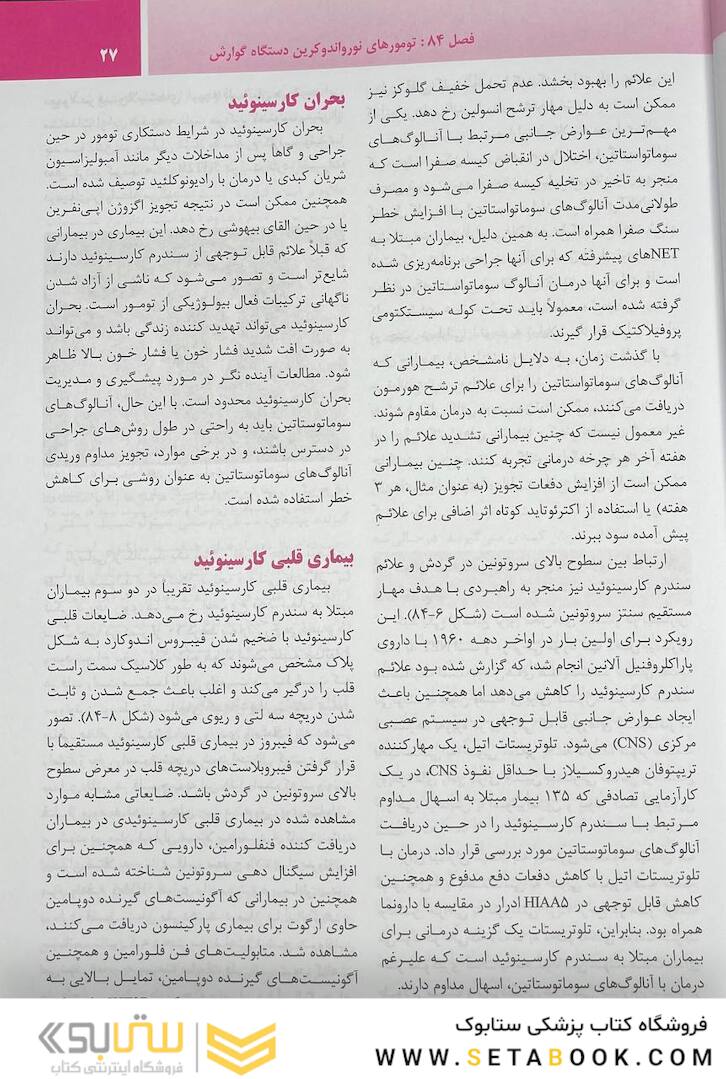 فصل ۸۴: تومورهای نورواندوکرین دستگاه گوارش
۲۷
این علائم را بهبود بخشد. عدم تحمل خفیف گلوکز نیز
ممکن است به دلیل مهار ترشح انسولین رخ دهد. یکی از
مهم‌ترین عوارض جانبی مرتبط با آنالوگ‌های
سوماتواستاتین، اختلال در انقباض کیسه صفرا است که
منجر به تاخیر در تخلیه کیسه صفرا می‌شود و مصرف
طولانی‌مدت آنالوگ‌های سوماتواستاتین با افزایش خطر
سنگ صفرا همراه است. به همین دلیل، بیماران مبتلا به
NETهای پیشرفته که برای آنها جراحی برنامه‌ریزی شده
است و برای آنها درمان آنالوگ سوماتواستاتین در نظر
گرفته شده است، معمولاً باید تحت کوله سیستکتومی
پروفیلاکتیک قرار گیرند.
با گذشت زمان، به دلایل نامشخص، بیمارانی که
آنالوگ‌های سوماتواستاتین را برای علائم ترشح هورمون
دریافت می‌کنند، ممکن است نسبت به درمان مقاوم شوند.
غیر معمول نیست که چنین بیمارانی تشدید علائم را در
هفته آخر هر چرخه درمانی تجربه کنند. چنین بیمارانی
ممکن است از افزایش دفعات تجویز (به عنوان مثال، هر ۳
هفته) یا استفاده از اکترئوتاید کوتاه اثر اضافی برای علائم
پیش آمده سود ببرند.
ارتباط بین سطوح بالای سروتونین در گردش و علائم
سندرم کارسینوئید نیز منجر به راهبردی با هدف مهار
مستقیم سنتز سروتونین شده است (شکل ۶-۸۴). این
رویکرد برای اولین بار در اواخر دهه ۱۹۶۰ با داروی
پاراکلروفنیل آلانین انجام شد، که گزارش شده بود علائم
سندرم کارسینوئید را کاهش می‌دهد اما همچنین باعث
ایجاد عوارض جانبی قابل توجهی در سیستم عصبی
مرکزی (CNS) می‌شود. تلوتریستات اتیل، یک مهارکننده
تریپتوفان هیدروکسیلاز با حداقل نفوذ CNS، در یک
کارآزمایی تصادفی که ۱۳۵ بیمار مبتلا به اسهال مداوم
مرتبط با سندرم کارسینوئید را در حین دریافت
آنالوگ‌های سوماتوستاتین مورد بررسی قرار داد. درمان با
تلوتریستات اتیل با کاهش دفعات دفع مدفوع و همچنین
کاهش قابل توجهی در HIAA۵ ادرار در مقایسه با دارونما
همراه بود. بنابراین، تلوتریستات یک گزینه درمانی برای
بیماران مبتلا به سندرم کارسینوئید است که علیرغم
درمان با آنالوگ‌های سوماتوستاتین، اسهال مداوم دارند.
بحران کارسینوئید
بحران کارسینوئید در شرایط دستکاری تومور در حین
جراحی و گاهاً پس از مداخلات دیگر مانند آمبولیزاسیون
شریان کبدی یا درمان با رادیونوکلئید توصیف شده است.
همچنین ممکن است در نتیجه تجویز اگزوژن اپی‌نفرین
یا در حین القای بیهوشی رخ دهد. این بیماری در بیمارانی
که قبلاً علائم قابل توجهی از سندرم کارسینوئید دارند
شایع‌تر است و تصور می‌شود که ناشی از آزاد شدن
ناگهانی ترکیبات فعال بیولوژیکی از تومور است. بحران
کارسینوئید می‌تواند تهدید کننده زندگی باشد و می‌تواند
به صورت افت شدید فشار خون یا فشار خون بالا ظاهر
شود. مطالعات آینده نگر در مورد پیشگیری و مدیریت
بحران کارسینوئید محدود است. با این حال، آنالوگ‌های
سوماتوستاتین باید به راحتی در طول روش‌های جراحی
در دسترس باشند، و در برخی موارد، تجویز مداوم وریدی
آنالوگ‌های سوماتوستاتین به عنوان روشی برای کاهش
خطر استفاده شده است.
بیماری قلبی کارسینوئید
بیماری قلبی کارسینوئید تقریباً در دو سوم بیماران
مبتلا به سندرم کارسینوئید رخ می‌دهد. ضایعات قلبی
کارسینوئید با ضخیم شدن فیبروس اندوکارد به شکل
پلاک مشخص می‌شوند که به طور کلاسیک سمت راست
قلب را درگیر می‌کند و اغلب باعث جمع شدن و ثابت
شدن دریچه سه لتی و ریوی می‌شود (شکل ۸-۸۴). تصور
می‌شود که فیبروز در بیماری قلبی کارسینوئید مستقیما با
قرار گرفتن فیبروبلاست‌های دریچه قلب در معرض سطوح
بالای سروتونین در گردش باشد. ضایعاتی مشابه موارد
مشاهده شده در بیماری قلبی کارسینوئیدی در بیماران
دریافت کننده فنفلورامین، دارویی که همچنین برای
افزایش سیگنال دهی سروتونین شناخته شده است و
همچنین در بیمارانی که آگونیست‌های گیرنده دوپامین
حاوی ارگوت برای بیماری پارکینسون دریافت می‌کنند،
مشاهده شد. متابولیت‌های فن فلورامین و همچنین
آگونیست‌های گیرنده دوپامین، تمایل بالایی به
فروشگاه کتاب پزشکی ستابوک
WWW.SETABOOK.COM
ستابوک
فروشگاه اینترنتی کتاب